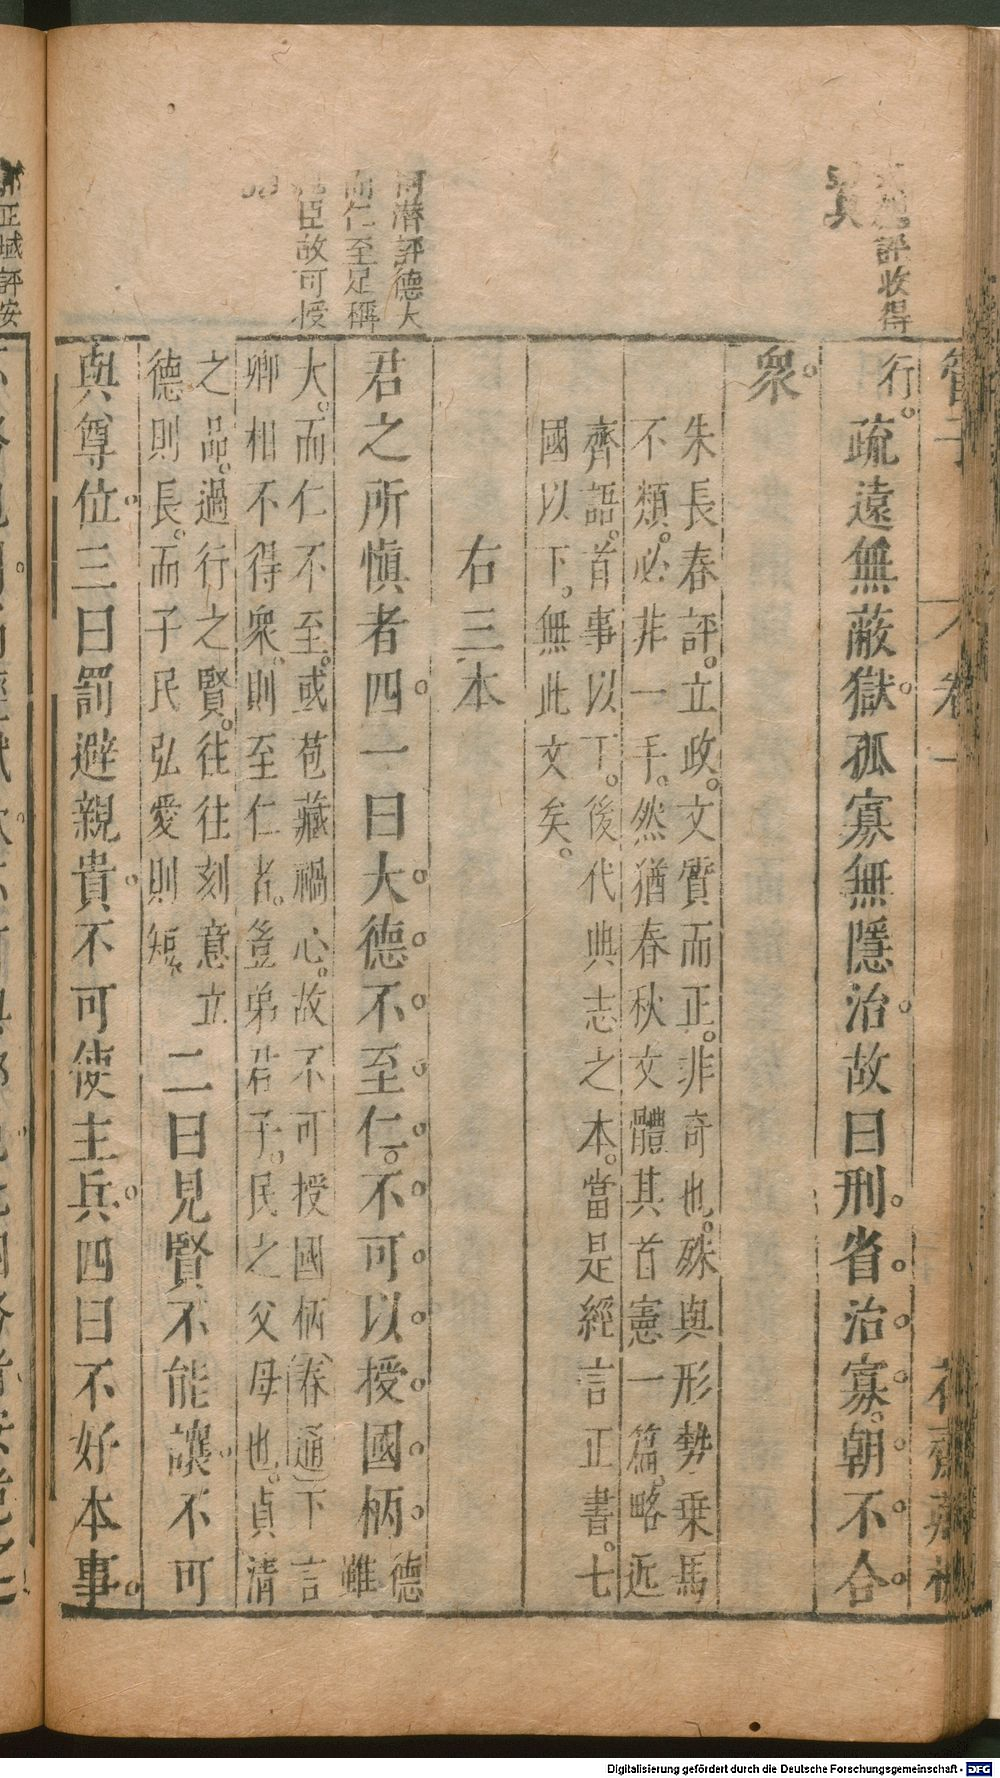 評收得
眞
河潜評德大
而仁至足稱
臣故可授
管子
卷一
行。
疏遠無蔽獄。孤寡無隱治。故曰刑。省。治。寡。朝。不。合。
衆。
朱長春評。立政。文質而正。非奇也。殊與形勢乗馬
不類。必非一手。然猶春秋文體其首憲一篇。略近
齊語。首事以丁。後代典志之本。當是經言正書。七
國以下。無此文矣。
右三本
君之所愼者四。一曰大。德。不。至。仁。不。可。以。授。國。柄。德雖
大。而仁不至。或苞藏禍心。故不可授國柄(春通)下言
卿相不得衆。則至仁者。豈弟君子。民之父母也。貞清
之品。過行之賢。往往刻意立
德則長。而子民弘愛則短。
二曰見賢不能讓。不可
與尊位。三曰罰避親貴。不可使主兵。四曰不好本事。
正域評安
Digitalisierung gefördert durch die Deutsche Forschungsgemeinschaft - DFG